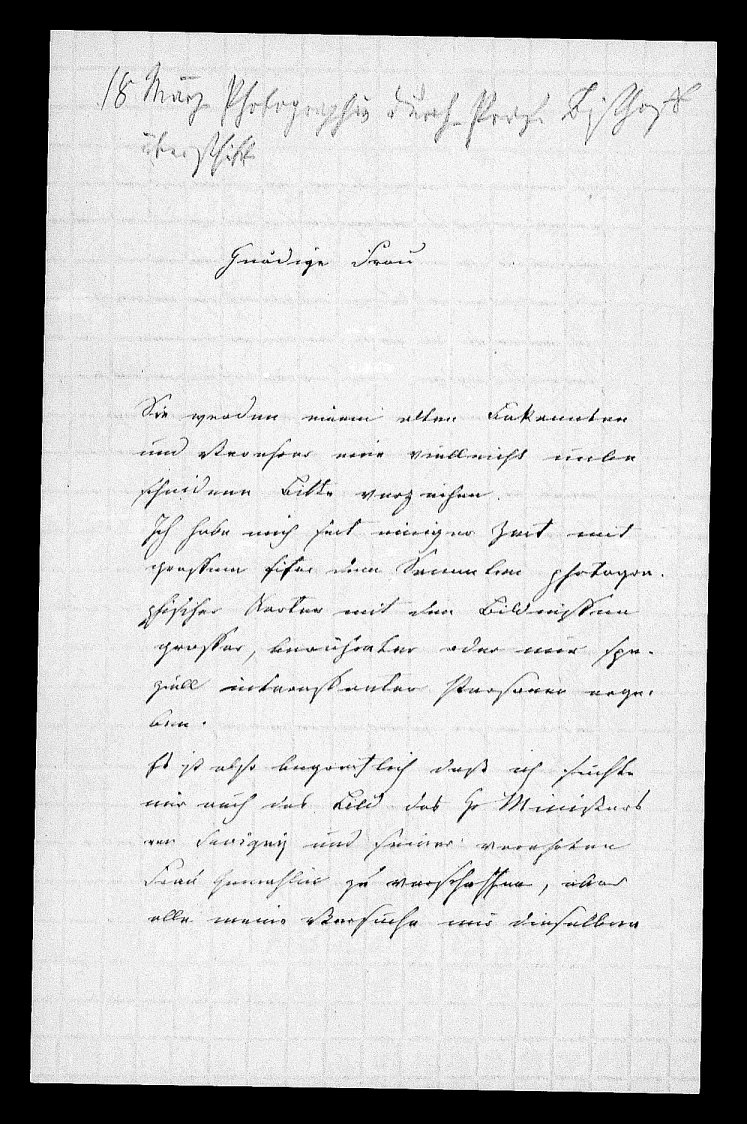 18 März Photographie durch Prof. Bischoff
überschickt
Gnädige Frau
Sie werden einem alten Bekannten
und Verehrer eine vielleicht unbe
scheidene Bitte verzeihen.
Ich habe mich seit einiger Zeit mit
grossem Eifer dem Sammlen photogra-
phischer Karten mit den Bildnissen
grosser, berühmter oder mir spe-
ziell interessanter Personen erge-
ben.
Es ist also begreiflich dass ich suchte
mir auch das Bild des Hr Ministers
von und seiner verehrten
Frau Gemahlin zu verschaffen, aber
alle meine Versuche mir dieselben